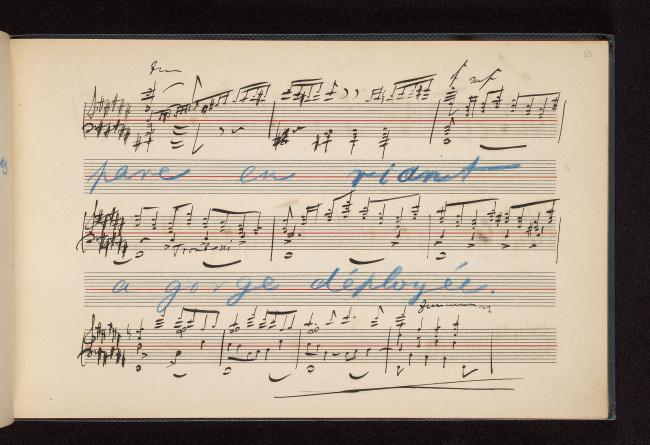 33
pare en riant
Tromboni
a gorge déployée.